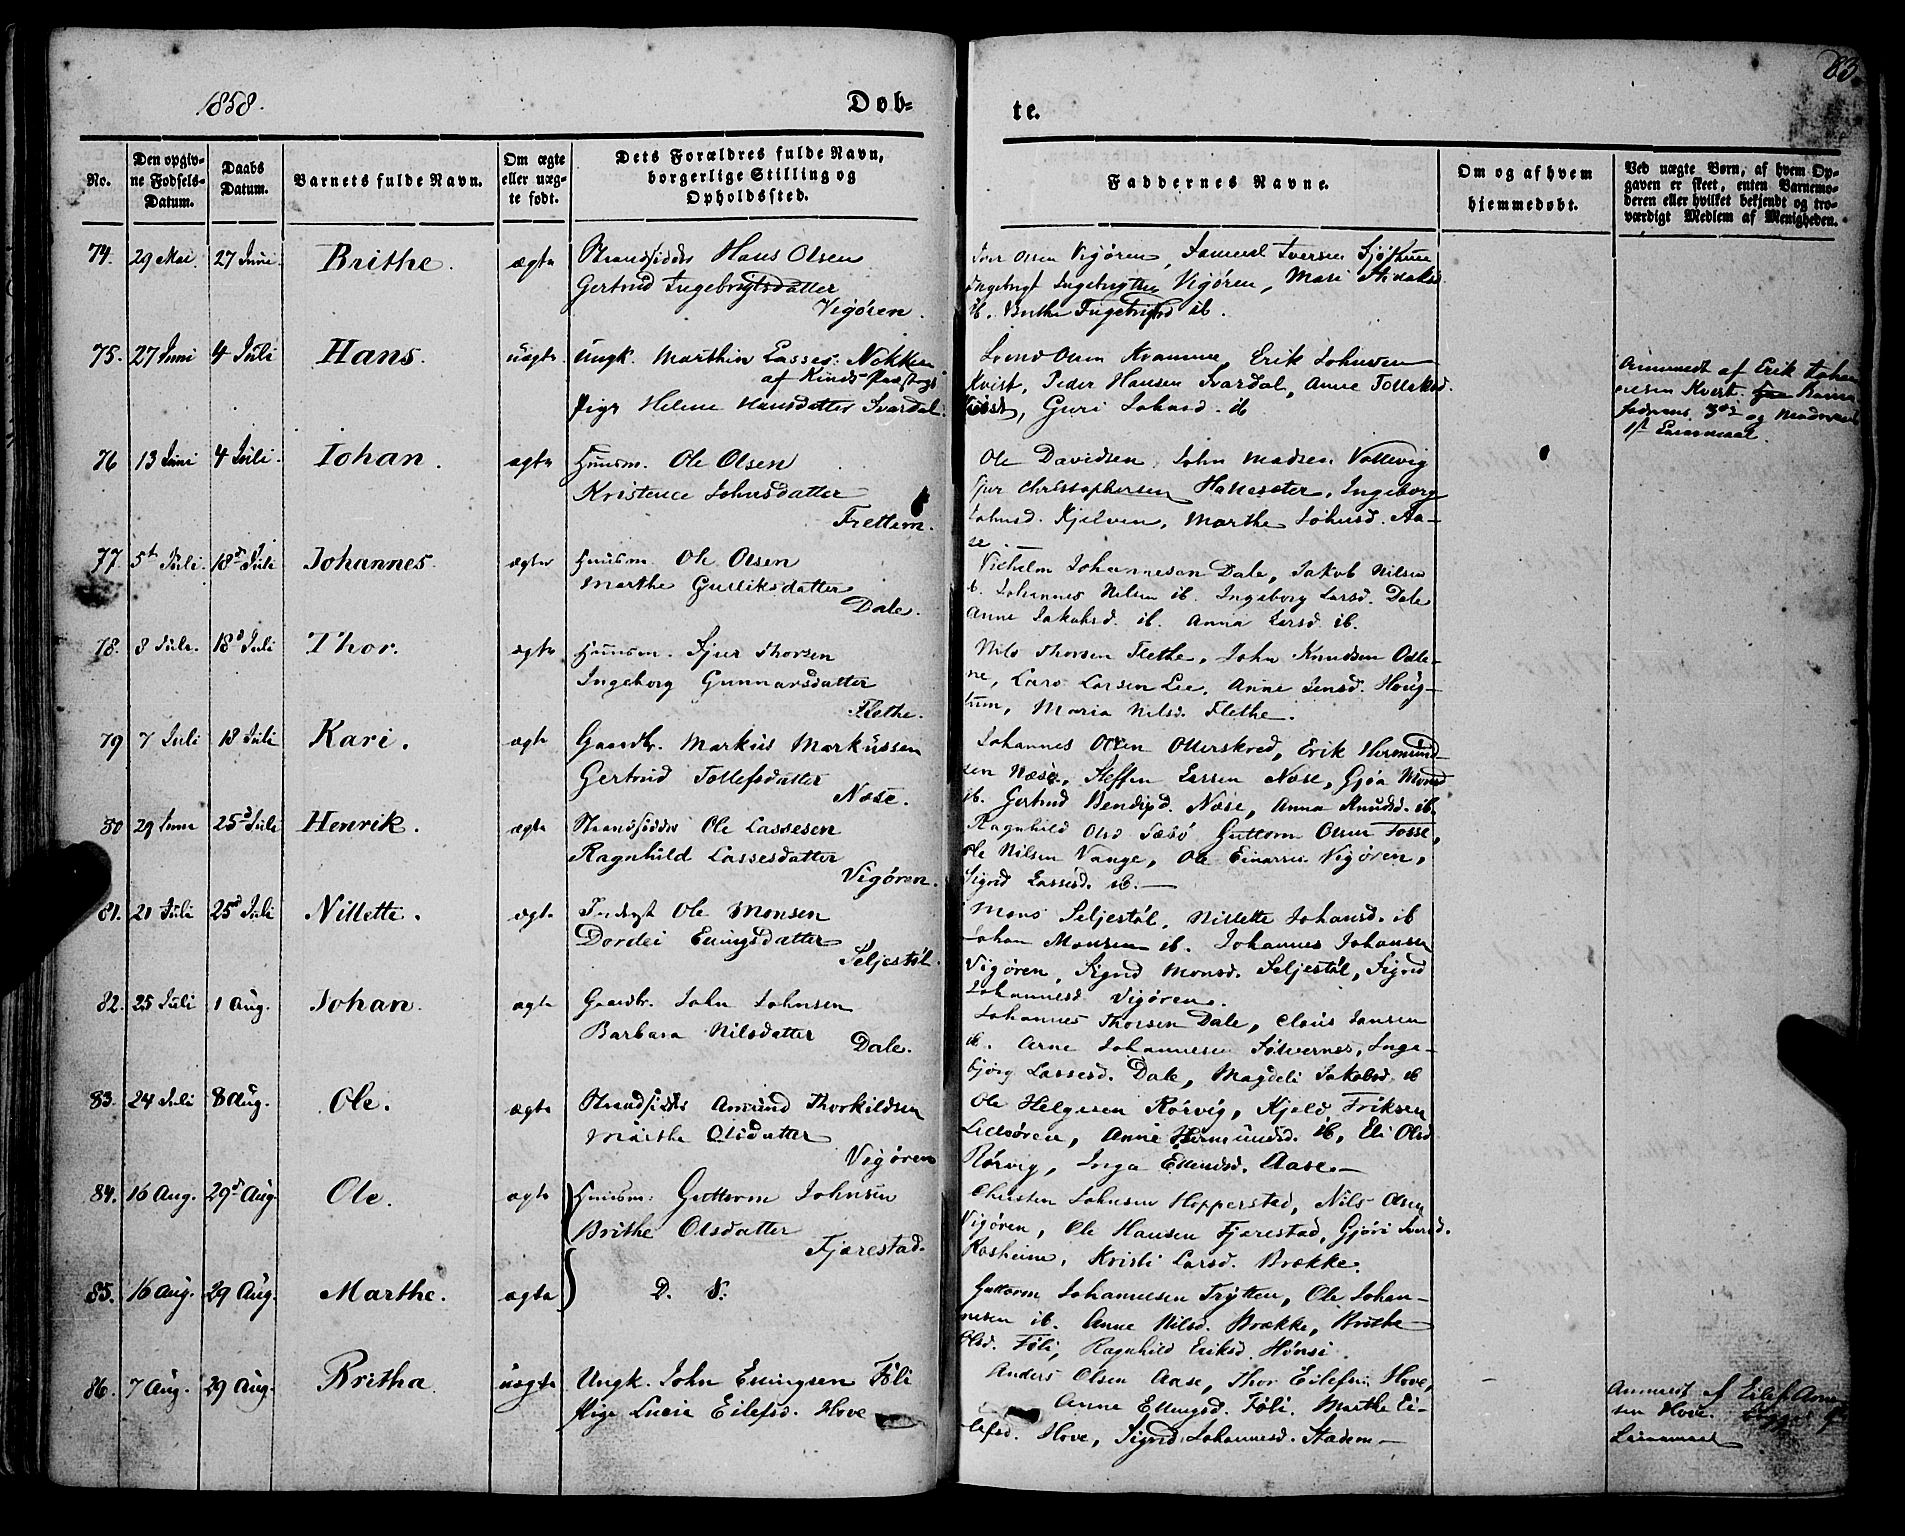 83.
1858.
Døb-
te.
No.
Den opgiv-
ne Fødsels-
Datum.
Daabs
Datum.
Barnets fulde Navn.
Om ægte
eller uæg-
te født.
Dets Forældres fulde Navn,
borgerlige Stilling og
Opholdssted.
Faddernes Navne.
Om og af hvem
hjemmedøbt.
Ved uægte Børn, af hvem Op-
gaven er skeet, enten Barnemo-
deren eller hvilket bekjendt og tro-
værdigt Medlem af Menigheden.
74. 29 Mai. 27 Juni. Brithe. ægte
Strandsidder Hans Olsen
Gertrud Ingebrigtsdatter
Vigøren.
Iver Olsen Vigøren, Samuel Iversen
Ingebrigt Vigøren, Mari
ib. Brithe Ingebrigtsd ib.
75. 27 Juni 4 Juli Hans. uægte
Ungk. Marthin Lasses. Nokken
af Kinds Præstegj
Pige Helene Hansdatter Svardal.
Svend Olsen Kvamme, Erik Johnsen
Kvist, Peder Hansen Svardal, Anne Tolleksd.
Guri Johnsd. ib
Anmeldt af Erik Johan
nesen Kvist. Barne
faderens 3de og Moderens
1st Leiermaal.
76 13 Juni 4 Juli. Johan. ægte
Huusm. Ole Olsen
Kristence Johnsdatter
Frettem.
Ole Davidsen, John Madsen Vallevig
Sjur Christophersen Ingeborg
Johnsd. Kjelven, Marthe Johnsd. Aa-
se. —
77. 5t Juli. 18d Juli Johannes. ægte
Huusm Ole Olsen
Marthe Gulliksdatter
Dale.
Vilhelm Johannesen Dale, Jakob Nilsen
ib. Johannes Nilsen ib. Ingeborg Larsd. Dale
Anne Jakobsd. ib. Anna Larsd. ib.
78. 8 Juli. 18d Juli Thor. ægte
Huusm. Sjur Thorsen
Ingeborg Gunnarsdatter
Flethe.
Nils Thorsen Flethe, John Knudsen Odle-
ne, Lars Larsen Lee, Anne Jensd. Houg-
tun, Maria Nilsd. Flethe.
79 7 Juli 18 Juli Kari. ægte
Gaardbr. Markus Markussen
Gertrud Tollefsdatter
Næse.
Johannes Olsen Otterskred, Erik Hermund-
sen Næse, Steffen Larsen Næse, Gjøa Monsd
ib. Gertrud Bendixd. Næse, Anna Knudsd. ib.
80 29 Juni 25d Juli Henrik. ægte
Strandsidder Ole Lassesen
Ragnhild Lassesdatter
Vigøren.
Ragnhild Olsd Sæbø Guttorm Olsen Fosse,
Ole Nilsen Vange, Ole Einarsen Vigøren,
Sigrid Lassesd. ib. —
81. 21 Juli 25d Juli Nillette. ægte
Inderst Ole Monsen
Dordei Ellingsdatter
Seljestøl.
Mons Seljestøl, Nillette Johansd. ib
Johan Monsen ib. Johannes Johansen
Vigøren, Sigrid Monsd. Seljestøl, Sigrid
Johannesd Vigøren.
82. 25 Juli 1 Aug. Johan. ægte
Gaardbr. John Johnsen
Barbara Nilsdatter
Dale.
Johannes Thorsen Dale, Claus Jansen
ib. Arne Johannesen Sølvernes, Inge-
bjørg Lassesd. Dale, Magdeli Jakobsd ib
83. 24 Juli 8 Aug. Ole. ægte
Strandsidder Amund Thorkildsen
Marthe Olsdatter
Vigøren
Ole Helgesen Rørvig, Kjeld Eriksen
Lillesøren, Anne Hermundsd. ib, Eli Olsd
Rørvig, Inga Ellendsd. Aase. —
84. 16 Aug. 29d Aug. Ole. ægte
Huusm. Guttorm Johnsen
Brithe Olsdatter
Fjærestad.
Christen Johnsen Hopperstad, Nils Olsen
Vigøren, Ole Hansen Fjærestad, Gjøri Iversd.
Rosheim, Kristi Larsd. Brække.
85. 16 Aug. 29 Aug. Marthe. ægte
D. S.
Guttorm Johannesen Trytten, Ole Johan-
nesen ib. Anne Nilsd. Brække, Brithe
Olsd. Føli, Ragnhild Eriksd. Hønsi.
86. 7 Aug. 29 Aug. Britha uægte
Ungk. John Ellingsen Føli
Pige Lucie Eilefsd. Hove
Anders Olsen Aase, Thor Eilefsen Hove,
Anne Ellingsd. Føli. Marthe Ei-
lefsd. Hove, Sigrid Johannesd. Stadem —
Anmeldt af Eilef Arne
sen Hove.
Leiermaal